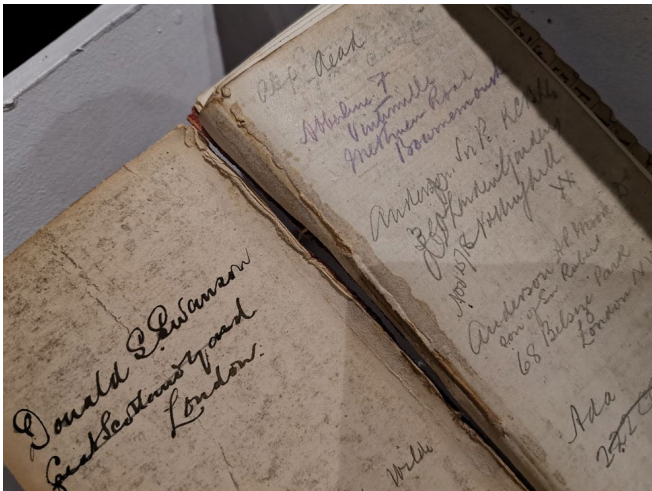 Donald S. Swanson
Great Scotland Yard
London.
Wilde
dead
Abberline F
Ventimille
Methuen Road
Bournemouth
Anderson Sir R. KCB
39 Linden Gardens
Nov 15/18 Nottinghill
XX
Anderson
son of Sir Robert
68 Belsize Park
London N.W
Ada